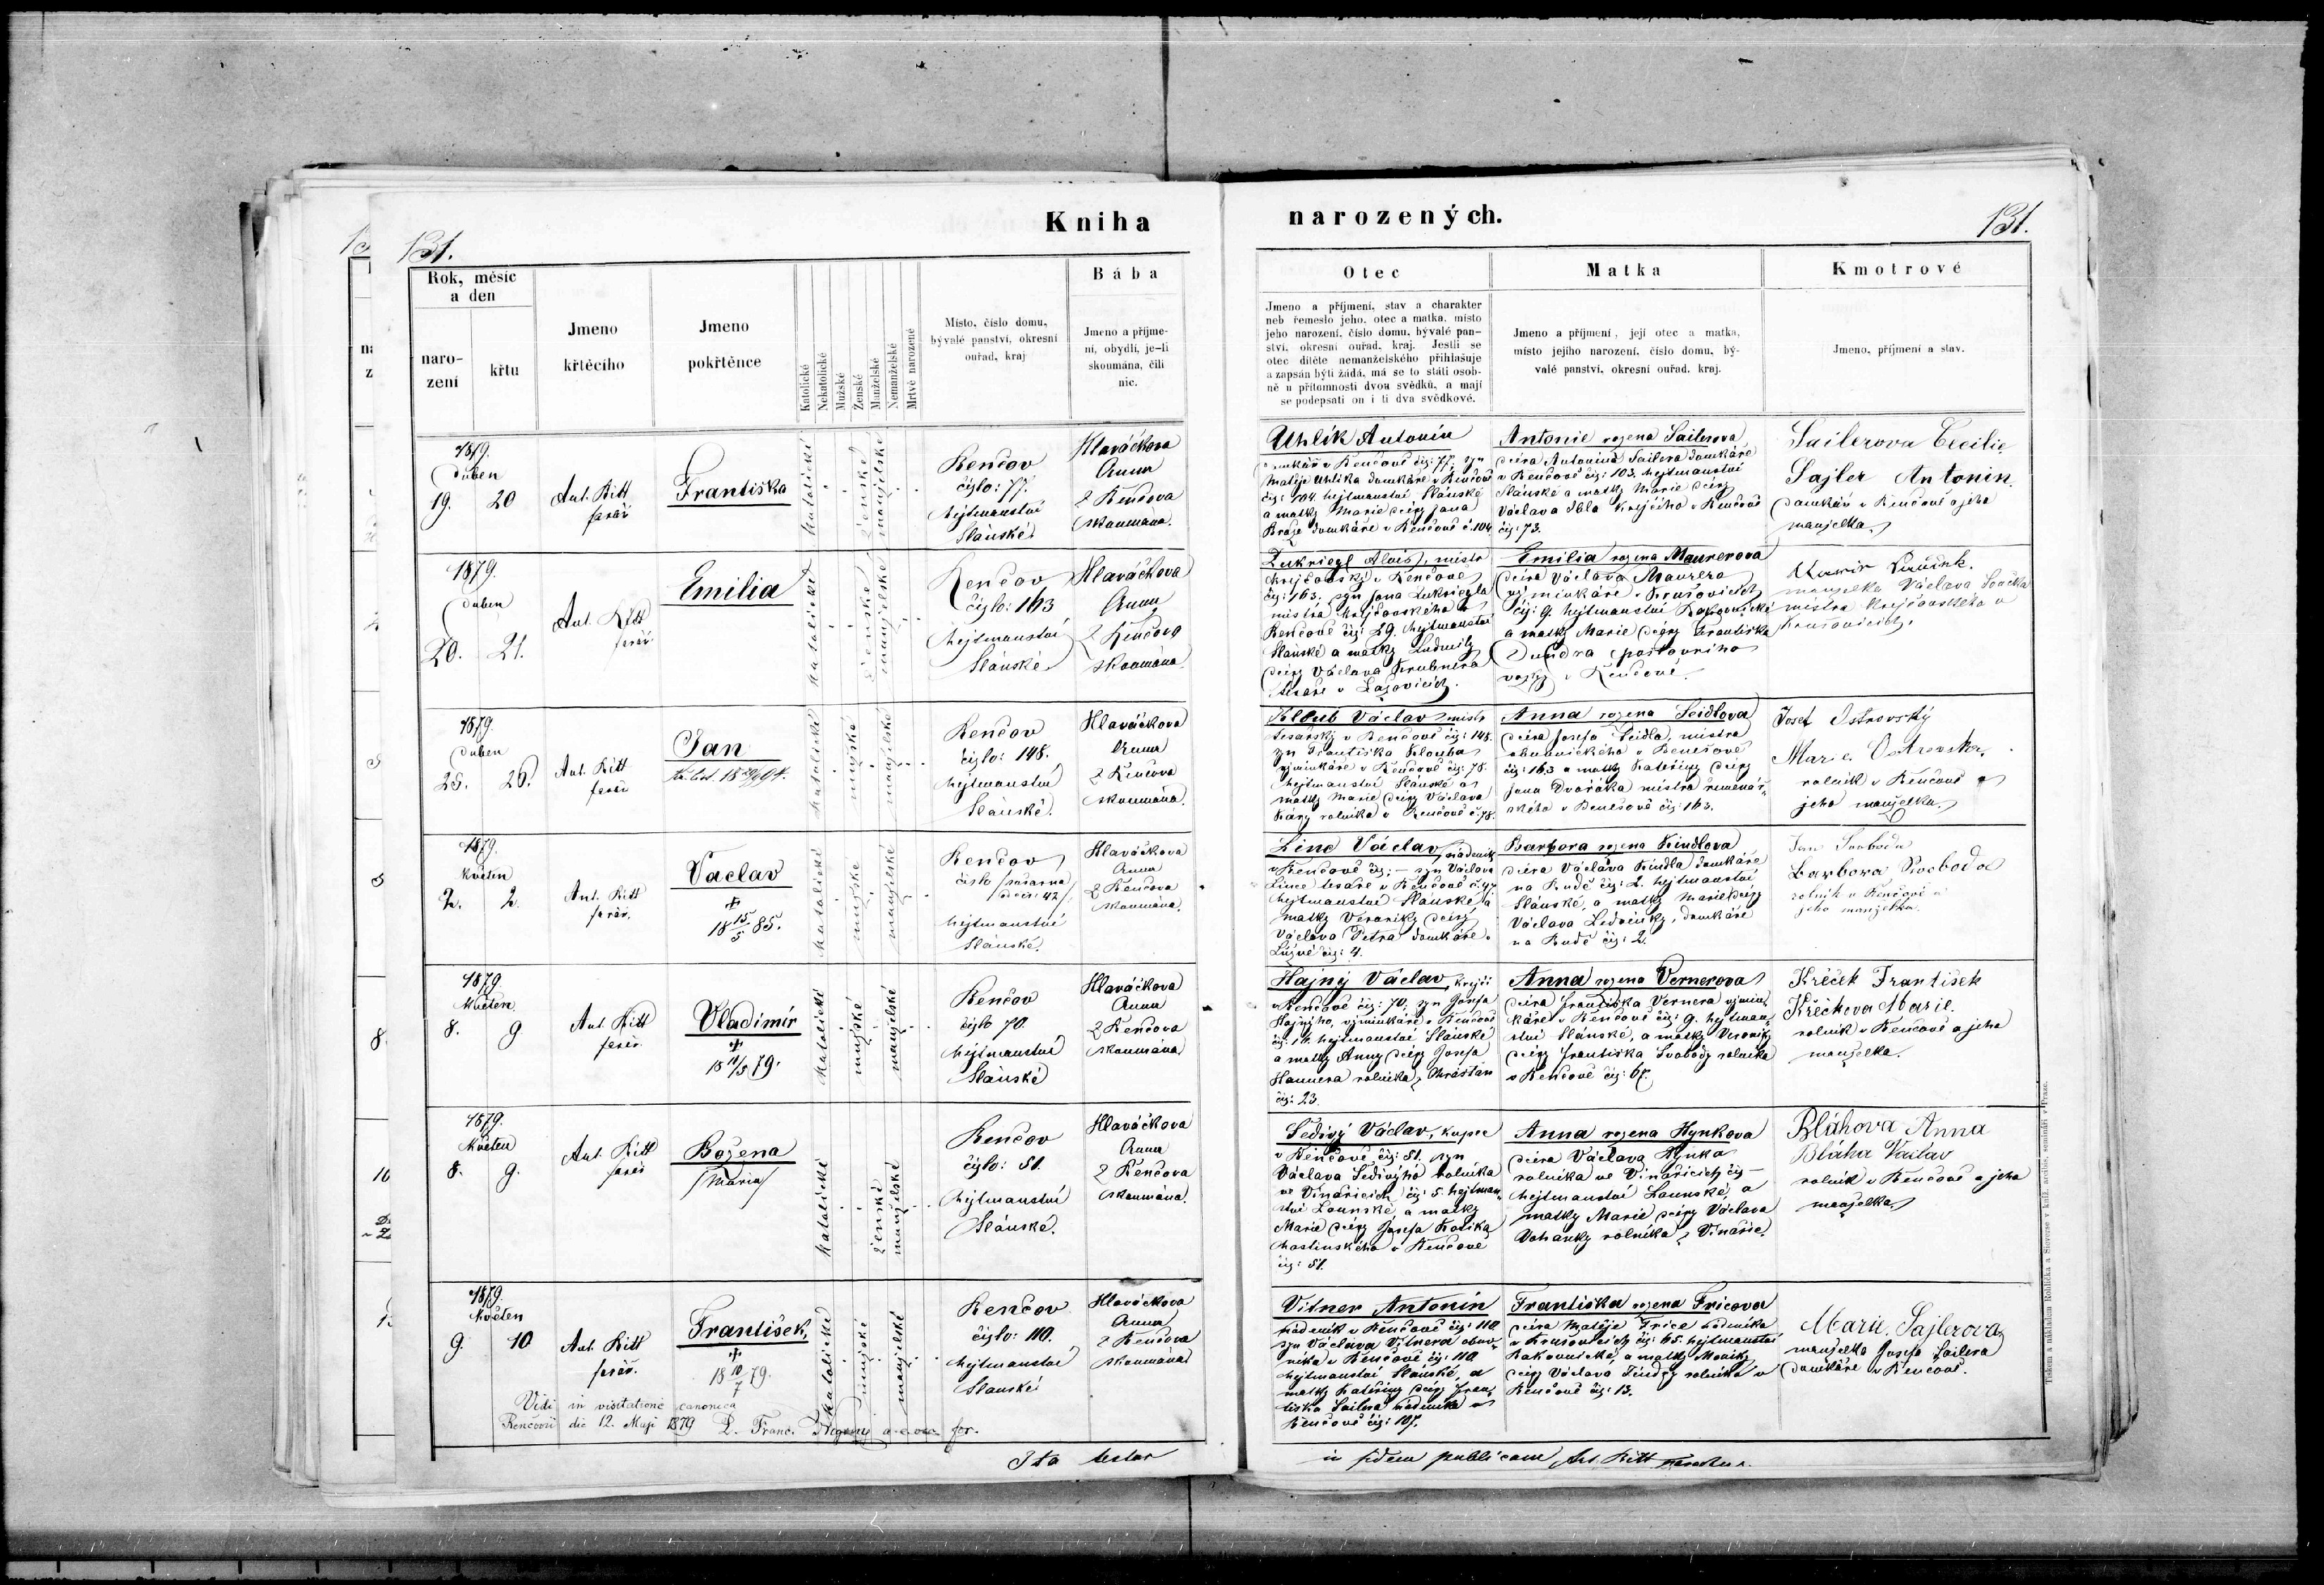 Kniha
131.
Rok, měsíc
a den
naro-
zení
křtu
Jmeno
křtěcího
Jmeno
pokřtěnce
Katolické
Nekatolické
Mužské
Ženské
Manželské
Nemanželské
Mrtvě narozené
Místo, číslo domu,
bývalé panství, okresní
ouřad, kraj
Bába
Jmeno a příjme-
ní, obydlí, je-li
skoumána, čili
nic.
1879.
Duben
19. 20
Ant. Ritt
farář
Františka
katolické
ženské
manželské
Renčov
číslo: 77.
hejtmanství
Slánské.
Hlaváčkova
Anna
z Renčova
skoumána.
1879.
Duben
20. 21.
Ant. Ritt
farář.
Emilia
katolické
ženské
manželské
Renčov
číslo: 163
hejtmanství
Slánské.
Hlaváčkova
Anna
z Renčova
skoumána.
1879.
Duben
25. 26.
Ant. Ritt
farář
Jan
katolické
mužské
manželské
Renčov
číslo: 148.
hejtmanství
Slánské.
Hlaváčkova
Anna
z Renčova
skoumána.
1879.
Květen
2. 2.
Ant. Ritt
farář.
Vaclav
✝
18 15/5 85.
katolické
mužské
manželské
Renčov
číslo
hejtmanství
Slánské.
Hlaváčkova
Anna
z Renčova
skoumána.
1879.
Květen
8. 9.
Ant. Ritt
farář.
Vladimír
✝
18 11/5 79.
katolické
mužské
manželské
Renčov
číslo 70.
hejtmanství
Slánské
Hlaváčkova
Anna
z Renčova
skoumána
1879.
Květen
8. 9.
Ant. Ritt
farář
Božena
/Maria/
katolické
ženské
manželské
Renčov
číslo: 51.
hejtmanství
Slánské.
Hlaváčkova
Anna
z Renčova
skoumána.
1879.
Květen
9. 10
Ant. Ritt
farář.
František,
✝
18 10/7 79.
katolické
mužské
manželské
Renčov
číslo: 110.
hejtmanství
Slanské
Hlaváčkova
Anna
z Renčova
skoumána
Vidi in visitatione canonica
Renčovii die 12. Maji 1879 P. Franc.
Ita testor
narozených.
131.
Otec
Jmeno a příjmení, stav a charakter
neb řemeslo jeho, otec a matka, místo
jeho narození, číslo domu, bývalé pan-
ství, okresní ouřad, kraj. Jestli se
otec dítěte nemanželského přihlašuje
a zapsán býti žádá, má se to státi osob-
ně u přítomnosti dvou svědků, a mají
se podepsati on i ti dva svědkové.
Matka
Jmeno a příjmení, její otec a matka,
místo jejího narození, číslo domu, bý-
valé panství, okresní ouřad, kraj.
Kmotrové
Jmeno, příjmení a stav.
Uhlík Antonín
domkář v Renčově čís: 77, syn
Matěje Uhlíka domkáře v Renčově
čís: 104. hejtmanství Slánské
a matky Marie dcery Jana
domkáře v Renčově č. 104.
Antonie rozena Sailerova
dcera Antonína Sailera domkáře
v Renčově čís: 103. hejtmanství
Slánské a matky Marie dcery
Václava krejčího v Renčově
čís: 73.
Sailerova Cecilie
Sajler Antonin
domkář v Renčově a jeho
manželka
Zukriegl Alois, mistr
krejčovský v Renčově
čís: 163. syn Jana Zukriegla
mistra krejčovského v
Renčově čís: 29. hejtmanství
Slánské a matky Ludmily
dcery Václava
tesaře v
Emilia rozena Maurerova
dcera Václava Maurera
výminkáře v Krušovicích
čís: 9. hejtmanství Rakovnické
a matky Marie dcery Františka
Dundra
v Renčově.
manželka Václava
mistra krejčovského v
Krušovicích.
Kloub Václav, mistr
tesařský v Renčově čís: 148.
syn Františka Klouba
výminkáře v Renčově čís: 78.
hejtmanství Slánské a
matky Marie dcery Václava
rolníka v Renčově č. 78.
Anna rozena Seidlova
dcera Josefa Seidla, mistra
v Benešově
čís: 163 a matky Kateřiny dcery
Jana Dvořáka mistra řemenář-
ského v Benešově čís: 163.
Josef Ostrovský
Marie Ostrovska
rolník v Renčově a
jeho manželka.
Linc Václav, nádeník
v Renčově čís: — syn Václava
Lince tesaře v Renčově č. 47
hejtmanství Slánské a
matky Veroniky dcery
Václava Petra domkáře v
Lužné čís: 4.
Barbora rozena Kindlova
dcera Václava Kindla domkáře
na Rudě čís: 2. hejtmanství
Slánské, a matky Marie dcery
Václava domkáře
na Rudě čís: 2.
Jan Svoboda
Barbora Swoboda
rolník v Renčově a
jeho manželka
Hajný Václav, krejčí
v Renčově čís: 70, syn Josefa
Hajného, výminkáře v Renčově
čís: 14. hejtmanství Slánské
a matky Anny dcery Josefa
rolníka z Chrášťan
čís: 23.
Anna rozena Vernerova
dcera Františka Vernera výmin-
káře v Renčově čís: 9. hejtman-
ství Slánské, a matky Veroniky
dcery Františka Svobody rolníka
v Renčově čís: 67.
Křeček František
Křečkova Marie.
rolník v Renčově a jeho
manželka.
Šedivý Václav, kupec
v Renčově čís: 51. syn
Václava Šedivýho rolníka
ve Vinařicích čís: 5. hejtman-
ství Lounské, a matky
Marie dcery Josefa
hostinského v Renčově
čís: 51.
Anna rozena Hynkova
dcera Václava Hynka
rolníka ve Vinařicích čís —
hejtmanství Lounské, a
matky Marie dcery Václava
rolníka z Vinařic.
Bláhova Anna
Bláha Vaclav
rolník v Renčově a jeho
manželka
Vitner Antonín
nádeník v Renčově čís: 110
syn Václava Vitnera obuv-
níka v Renčově čís: 110
hejtmanství Slánské, a
matky Kateřiny dcery Fran-
tiška Sailera nádeníka v
Renčově čís: 107.
Františka rozena Fricova
dcera Matěje Frice nádeníka
v Krušovicích čís: 65. hejtmanství
Rakovnické, a matky Moniky
dcery Václava rolníka v
Renčově čís: 13.
Marie Sajlerova
manželka Josefa Sailera
domkáře v Renčově.
in fidem publicam Ant. Ritt